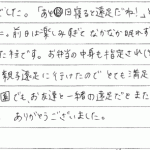 でした。「あと●日寝ると遠足だね！」
た。前日は楽しみすぎてなかなか眠れず
た様子です。お弁当の中身も指定され(
親子遠足に行けたので とても満足
園でも、お友達と一緒の遠足だとまた
ありがとうございました。